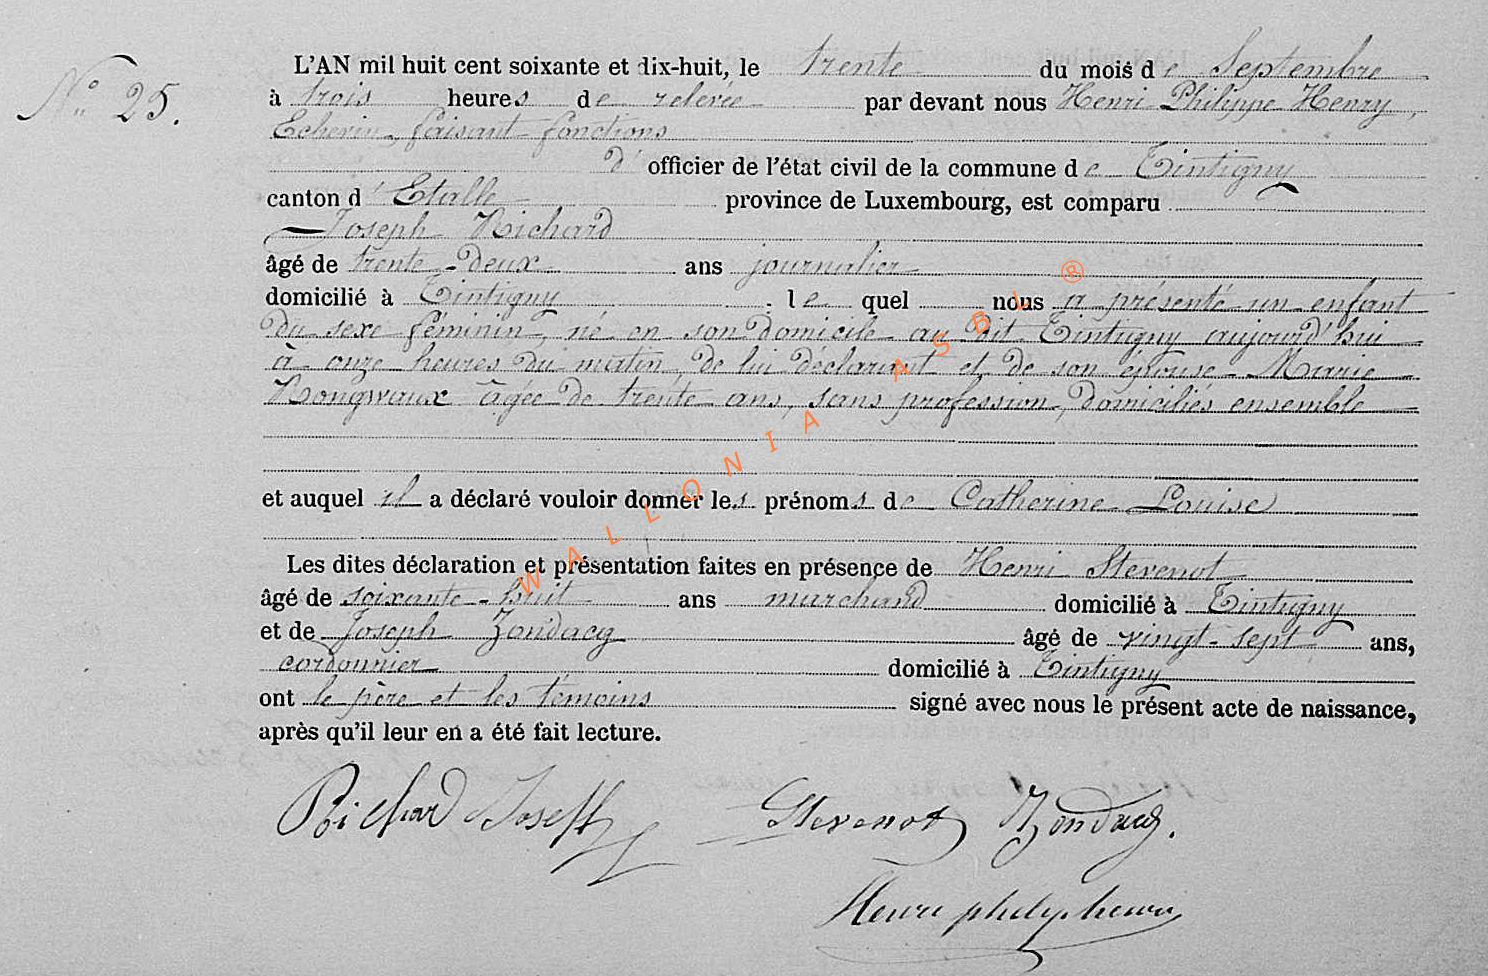 N° 25.
L'AN mil huit cent soixante et dix-huit, le trente du mois de Septembre
à trois heures de relevée par devant nous Henri Philippe Henry,
Echevin, faisant fonctions
d'officier de l'état civil de la commune de Tintigny
canton d'Etalle province de Luxembourg, est comparu
Joseph Richard
âgé de trente-deux ans journalier
domicilié à Tintigny. lequel nous a présenté un enfant
du sexe féminin, né en son domicile au dit Tintigny aujourd'hui
à onze heures du matin, de lui déclarant et de son épouse Marie
Rongvaux âgée de trente ans, sans profession, domiciliés ensemble
et auquel il a déclaré vouloir donner les prénoms de Catherine Louise
Les dites déclaration et présentation faites en présence de Henri Stevenot
âgé de soixante-huit ans marchand domicilié à Tintigny
et de Joseph Zondacq âgé de vingt-sept ans,
cordonnier domicilié à Tintigny
ont le père et les témoins signé avec nous le présent acte de naissance,
après qu'il leur en a été fait lecture.
Richard Joseph Stevenot Zondacq.
Henri philip henri
WALLONIA ASBL ®